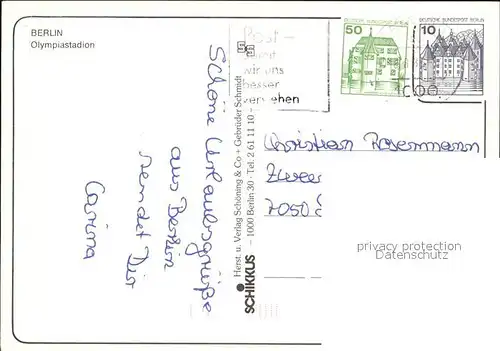 BERLIN
Olympiastadion
Schöne Urlaubsgrüße
aus Berlin
sendet Dir
Carina
SCHIKKUS
Herst. u. Verlag Schöning & Co + Gebrüder Schmidt
– 1000 Berlin 30 · Tel. 2 61 11 10 –
Post –
wir uns
besser
verstehen
50
DEUTSCHE BUNDESPOST BERLIN
10
DEUTSCHE BUNDESPOST BERLIN
Christian Rosermann
7050
privacy protection
Datenschutz